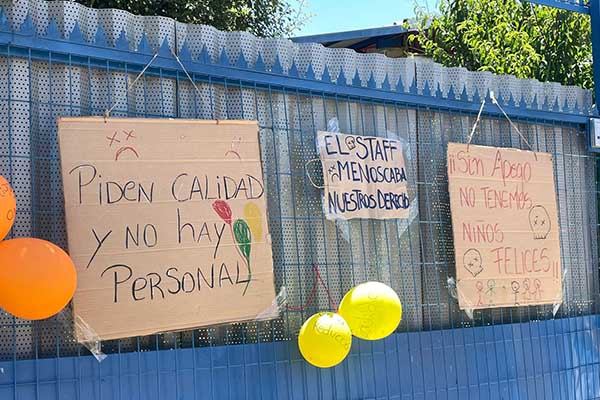 PIDEN CALIDAD
Y NO HAY
PERSONAL
EL STAFF
MENOSCABA
NUESTROS DERECHO
¡¡Sin Apego
NO TENEMOS
NIÑOS
FELICES!!